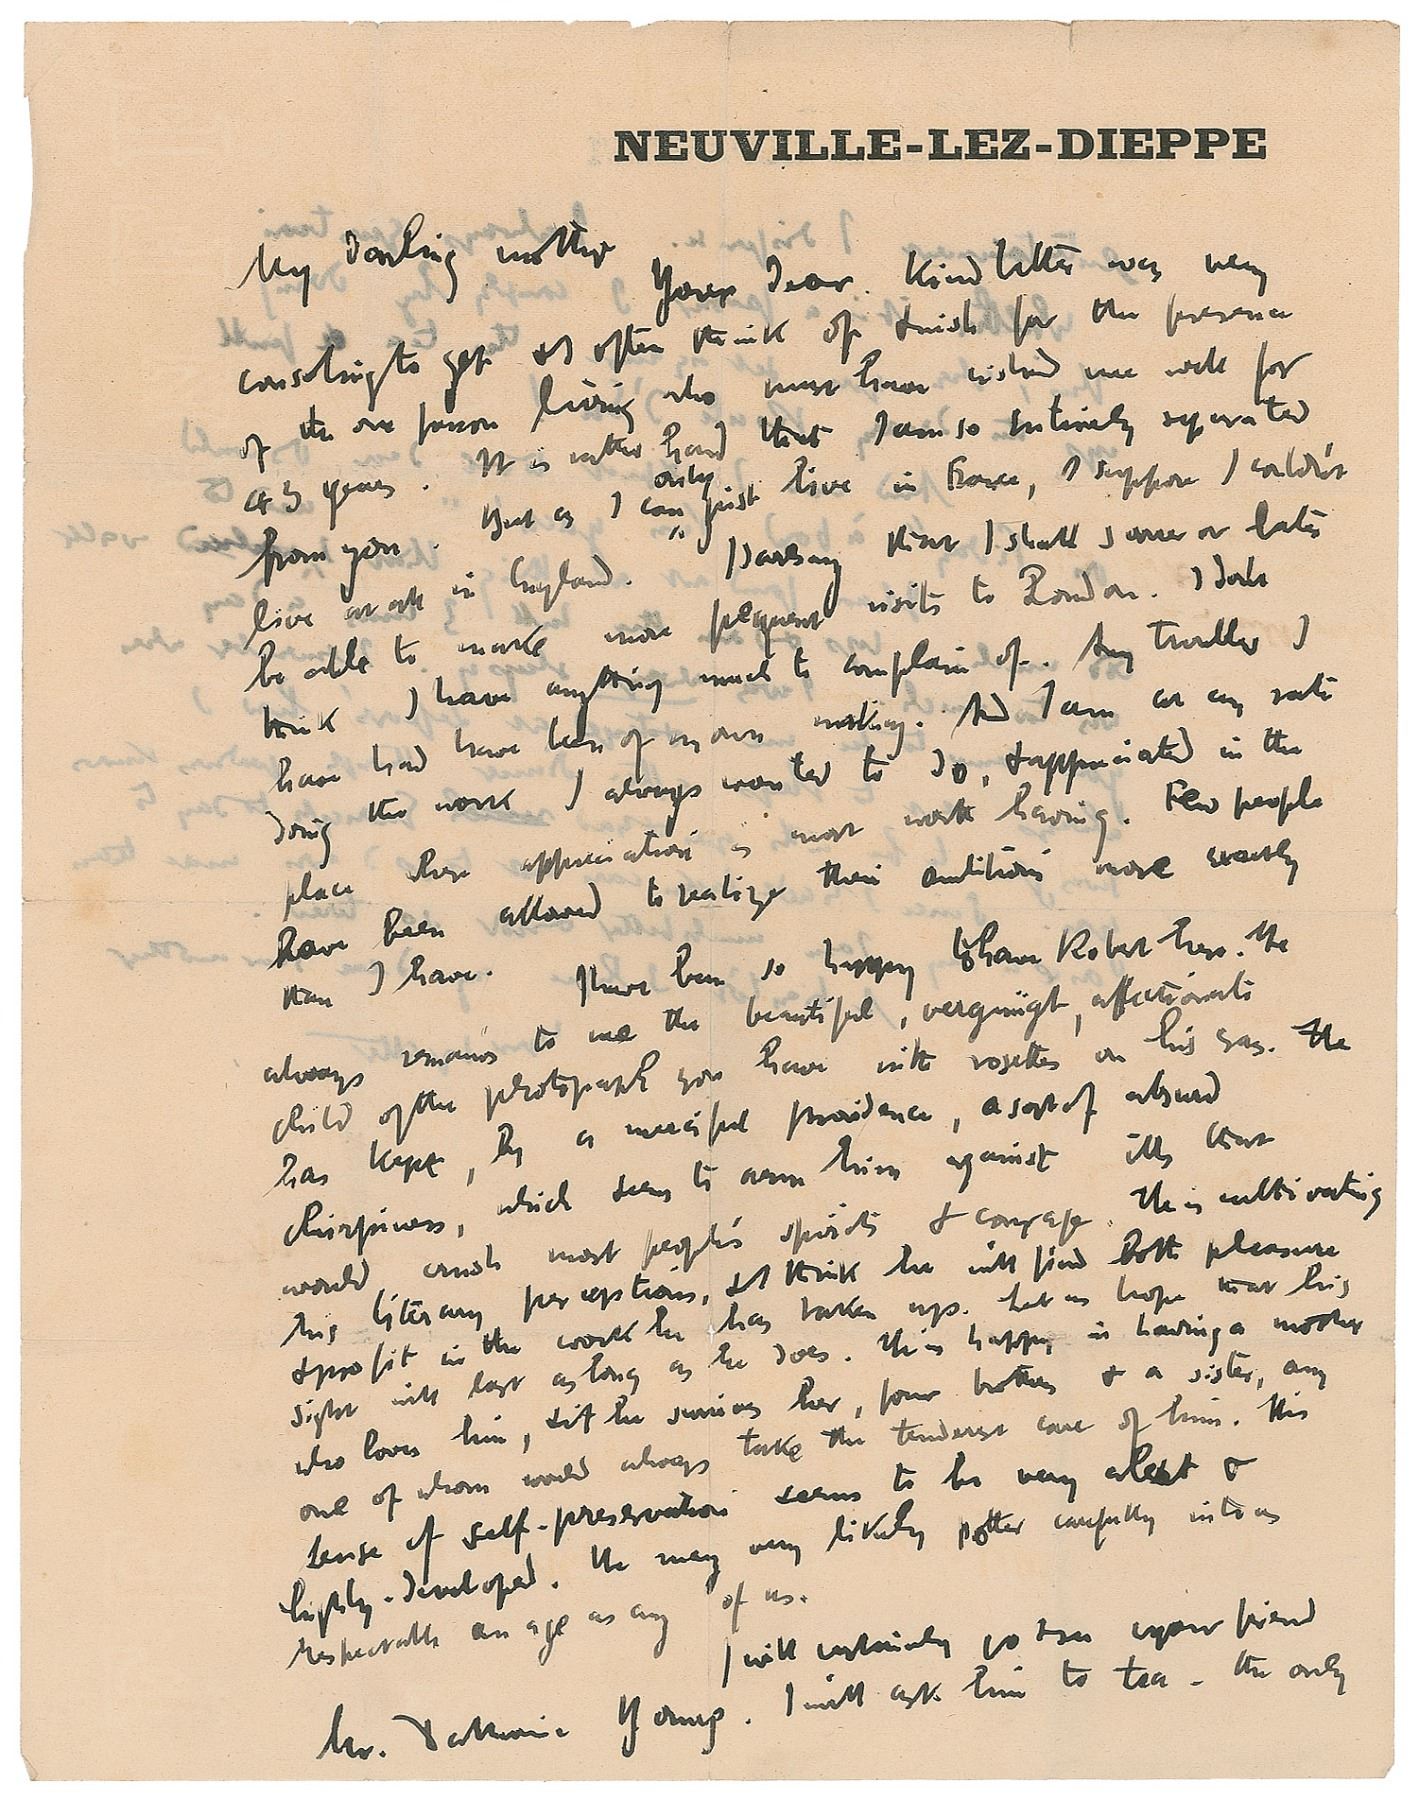 NEUVILLE-LEZ-DIEPPE
My darling mother
Your dear. Kind letter was very
consoling to get. & I often think of & wish for the presence
of the one person living who must have wished me well for
43 years. It is rather hard that I am so entirely separated
from you. But as I can only just live in France, I suppose I couldn't
live at all in England. I daresay that I shall sooner or later
be able to make more frequent visits to London. I don't
think I have anything much to complain of. Any troubles I
have had have been of my own making. And I am at any rate
doing the work I always wanted to do, & appreciated in the
place where appreciation is most worth having. Few people
have been allowed to realize their ambitions more exactly
than I have. I have been so happy to have Robert here. He
always remains to me the beautiful, vergnügt, affectionate
child of the photograph you have with rosettes on his
has kept, by a merciful providence, a sort of absurd
chirpiness, which seems to arm him against ills that
would crush most people's spirits & courage. He is cultivating
his literary perceptions, & I think he will find both pleasure
& profit in the work he has taken up. Let us hope that his
sight will last as long as he does. He is happy in having a mother
who loves him, & if he survives her, four brothers & a sister, any
one of whom would always take the tenderest care of him. His
sense of self-preservation seems to be very alert &
highly-developed. He may very likely potter carefully into as
respectable an age as any of us.
I will certainly go & see your friend
Mr. Young. I will ask him to tea. The only